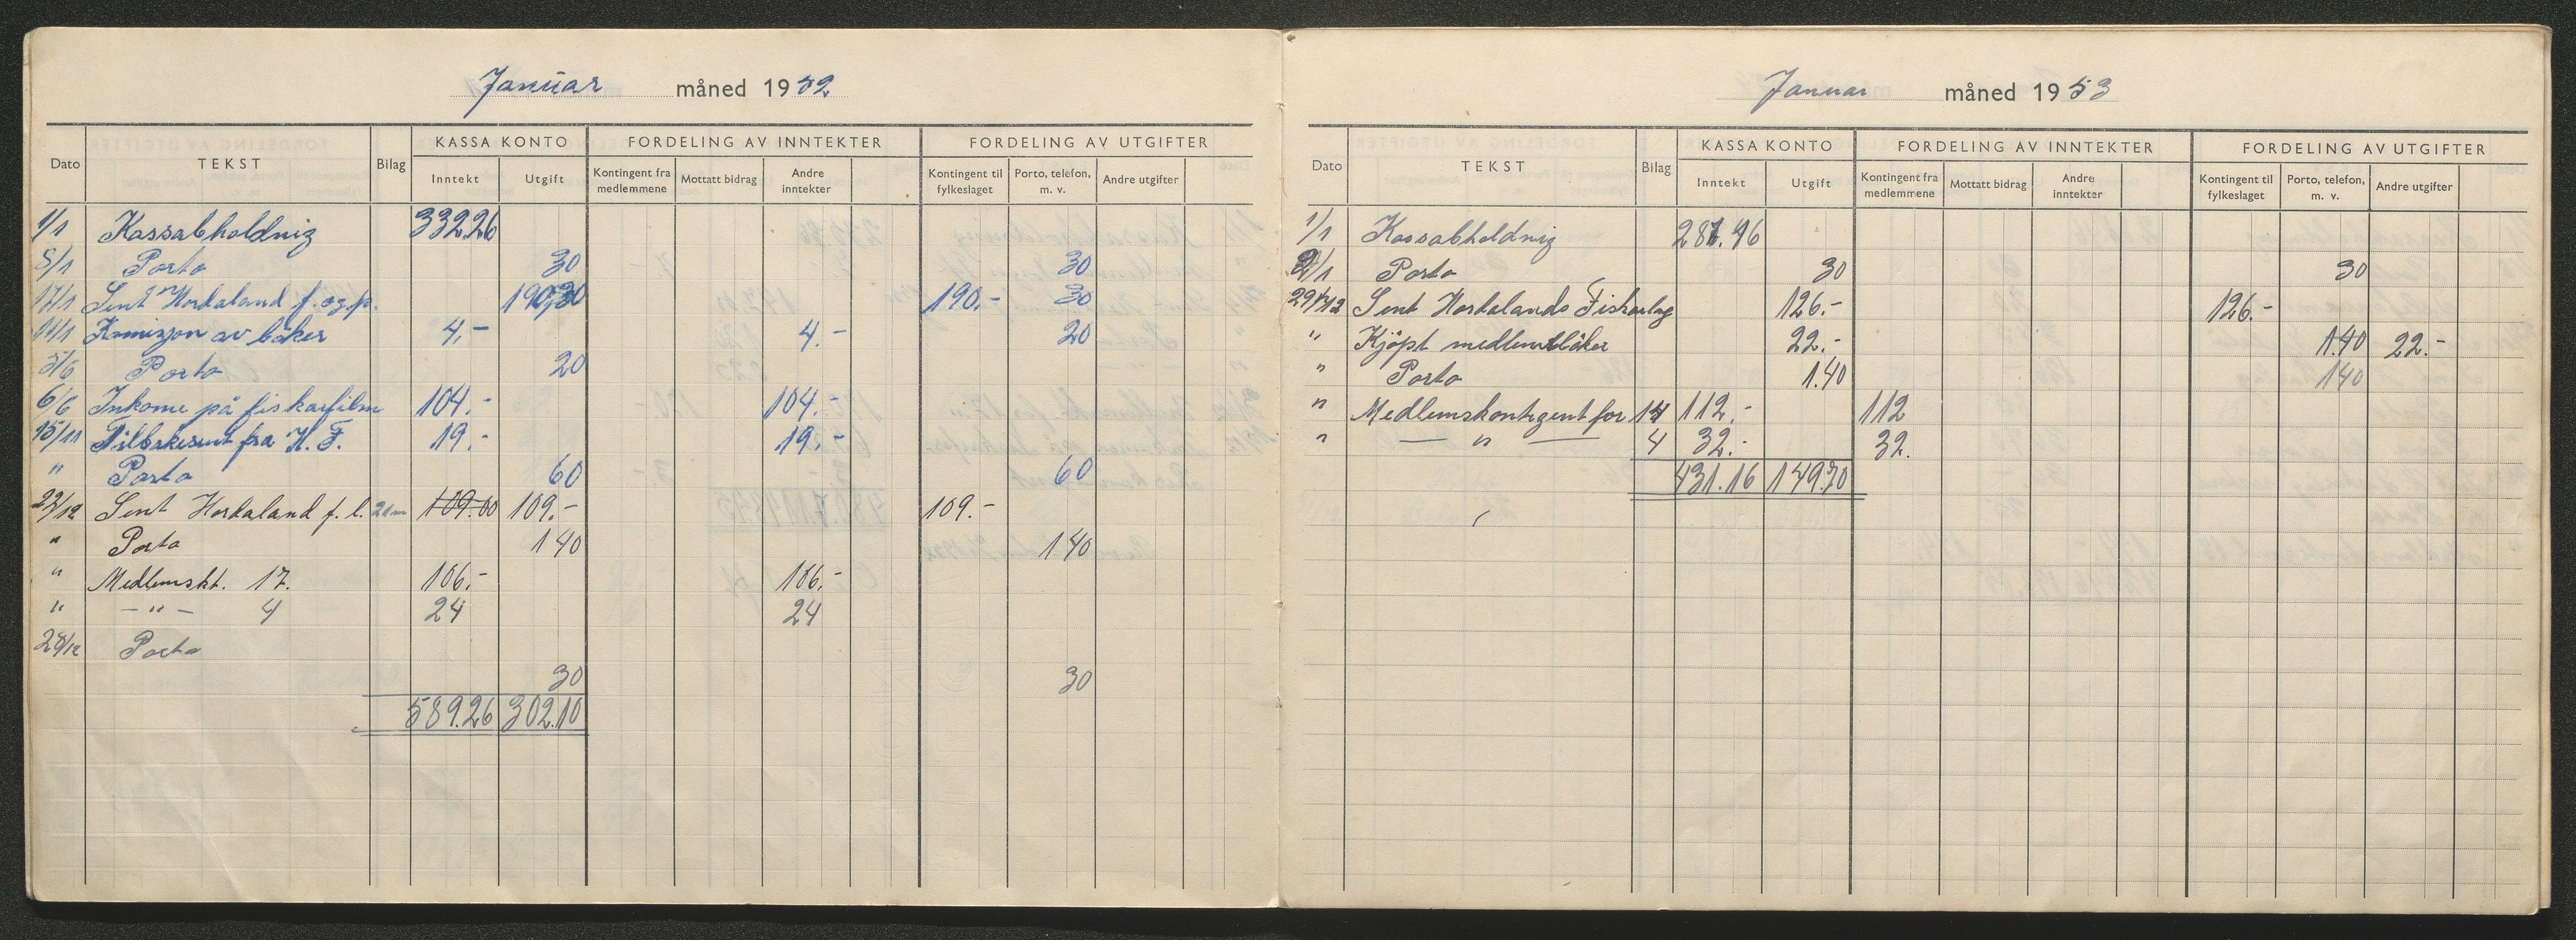 Januar måned 1952
KASSA KONTO FORDELING AV INNTEKTER FORDELING AV UTGIFTER
Dato TEKST Bilag Inntekt Utgift Kontingent fra medlemmene Mottatt bidrag Andre inntekter Kontingent til fylkeslaget Porto, telefon, m. v. Andre utgifter
1/1 Kassabholdnig 332.26
5/1 Porto 30 30
17/1 Sent Hordaland f. og p. 190,30 190.- 30
Komisjon av böker 4,- 4.- 20
5/6 Porto 20
6/6 Inkome på fiskarfilm 104.- 104.-
15/11 Tilbakesent fra H. F. 19.- 19.-
" Porto 60 60
22/12 Sent Hordaland f. l. 21m 109.00 109.- 109.-
" Porto 1 40 1 40
" Medlemskt. 17. 106.- 106.-
" -"- 4 24 24
28/12 Porto
30 30
589.26 302.10
Januar måned 1953
KASSA KONTO FORDELING AV INNTEKTER FORDELING AV UTGIFTER
Dato TEKST Bilag Inntekt Utgift Kontingent fra medlemmene Mottatt bidrag Andre inntekter Kontingent til fylkeslaget Porto, telefon, m. v. Andre utgifter
1/1 Kassabholdnig 287.46
2/1 Porto 30 30
29/12 Sent Hordalands Fiskarlag 126.- 126.-
" Kjöpt medlemsböker 22.- 1.40 22.-
" Porto 1.40 1 40
" Medlemskontigent for 14 112.- 112
" — " — 4 32.- 32.
431.16 149.70